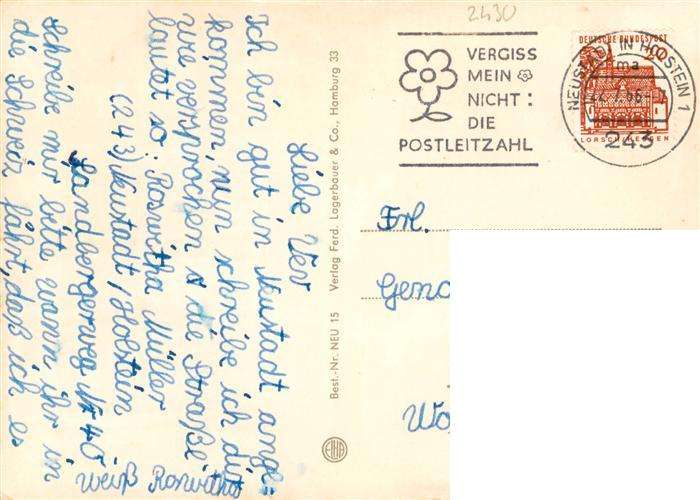 2430
VERGISS
MEIN
NICHT:
DIE
POSTLEITZAHL
DEUTSCHE BUNDESPOST
20
NEUSTADT IN HOLSTEIN 1
ma
66
243
LORSCH/HESSEN
Liebe Vev
Ich bin gut in Neustadt ange-
kommen, nun schreibe ich dir
wie versprochen die Straße
lautet so: Roswitha Müller
(243) Neustadt/Holstein
Sandbergerweg Nr 40
schreibe mir bitte wann ihr in
die Schweiz fährt, daß ich es
weiß Roswitha
Best.-Nr. NEU 15 Verlag Ferd. Lagerbauer & Co., Hamburg 33
Frl.
Geno
Wo